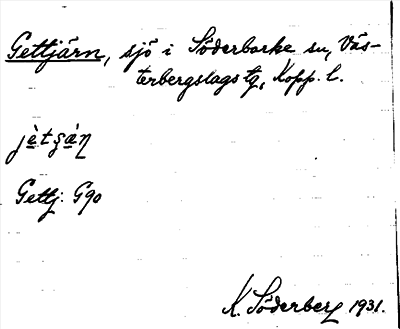 Gettjärn, sjö i Söderbarke sn, Väs-
terbergslags tg, Kopp. l.
jètşàn
Gettj. G90
K. Söderberg 1931.